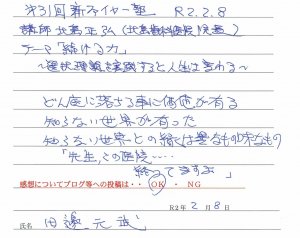 第31回 新ファイヤー塾 R2.2.8
講師 北島正弘(北島歯科医院院長)
テーマ「続ける力」
～選択理論を実践すると人生は変わる～
どん底に落ちる事に価値が有る
知らない世界が有った
知らない世界との縁は異なもの味なもの
「先生、この医院‥‥
終ってますよ」
感想についてブログ等への投稿は・・ OK ・ NG
R2年 2月 8日
氏名 田邊 元